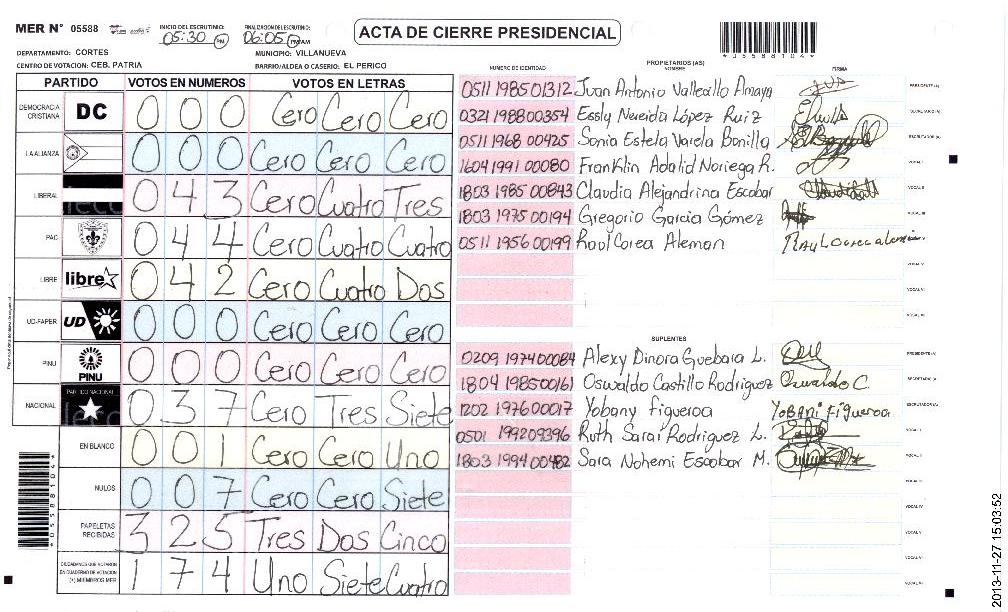 MER Nº 05588 INICIO DEL ESCRUTINIO: 05:30 PM FINALIZACION DEL ESCRUTINIO: 06:05 PM
ACTA DE CIERRE PRESIDENCIAL
*05588104*
DEPARTAMENTO: CORTES MUNICIPIO: VILLANUEVA
CENTRO DE VOTACION: CEB. PATRIA BARRIO/ALDEA O CASERIO: EL PERICO
PARTIDO VOTOS EN NUMEROS VOTOS EN LETRAS
DEMOCRACIA CRISTIANA DC 0 0 0 Cero Cero Cero
LA ALIANZA 0 0 0 Cero Cero Cero
LIBERAL 0 4 3 Cero Cuatro Tres
PAC 0 4 4 Cero Cuatro Cuatro
LIBRE libre 0 4 2 Cero Cuatro Dos
UD-FAPER UD 0 0 0 Cero Cero Cero
PINU PINU 0 0 0 Cero Cero Cero
NACIONAL PARTIDO NACIONAL 0 3 7 Cero Tres Siete
EN BLANCO 0 0 1 Cero Cero Uno
NULOS 0 0 7 Cero Cero Siete
PAPELETAS RECIBIDAS 3 2 5 Tres Dos Cinco
CIUDADANOS QUE VOTARON EN CUADERNO DE VOTACION (+) MIEMBROS MER 1 7 4 Uno Siete Cuatro
*05588104*
NUMERO DE IDENTIDAD PROPIETARIOS (AS) NOMBRE FIRMA
0511 1985 01312 Juan Antonio Vallecillo Amaya PRESIDENTE (A)
0321 1988 00354 Essly Nereida López Ruiz SECRETARIO (A)
0511 1968 00425 Sonia Estela Varela Bonilla ESCRUTADOR (A)
1604 1991 00080 Franklin Adalid Noriega R. VOCAL I
1803 1985 00843 Claudia Alejandrina Escobar VOCAL II
1803 1975 00194 Gregorio Garcia Gómez VOCAL III
0511 1956 00199 Raul Corea Aleman
VOCAL V
VOCAL VI
SUPLENTES
0209 1974 00084 Alexy Dinora Guebara L. PRESIDENTE (A)
1804 1985 00161 Oswaldo Castillo Rodriguez Oswaldo C. SECRETARIO (A)
1202 1976 00017 Yobany Figueroa Yobani Figueroa ESCRUTADOR (A)
0501 1992 09396 Ruth Sarai Rodriguez L. VOCAL I
1803 1994 00482 Sara Nohemi Escobar M. VOCAL II
VOCAL III
VOCAL IV
VOCAL V
VOCAL VI
2013-11-27 15:03:52